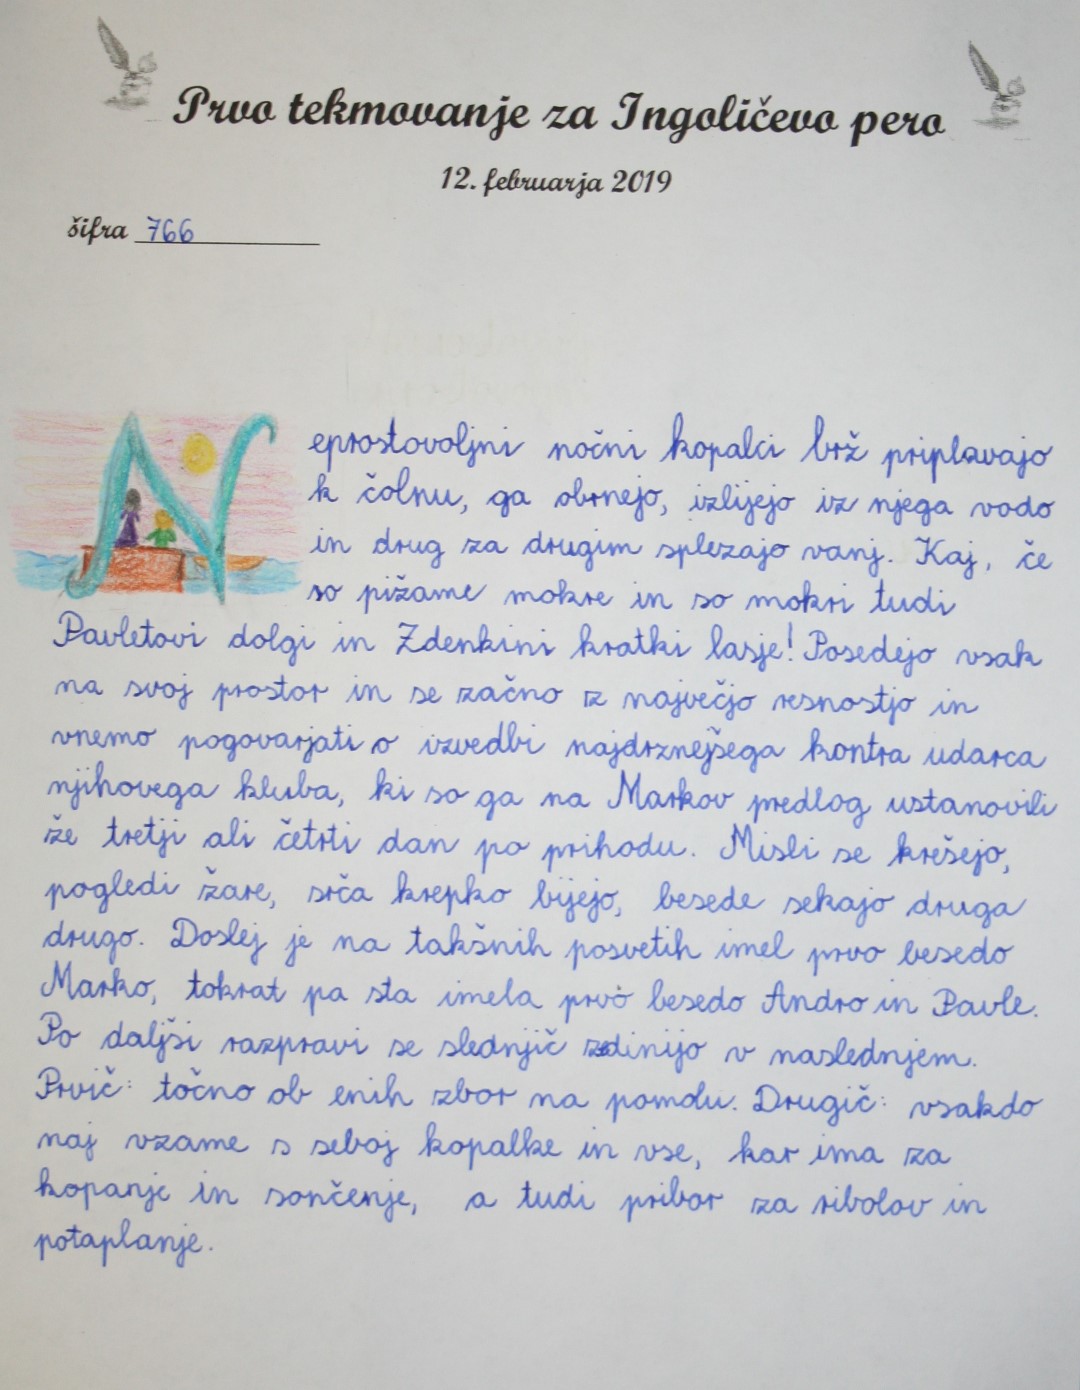 Prvo tekmovanje za Ingoličevo pero
12. februarja 2019
šifra 766
Neprostovoljni nočni kopalci brž priplavajo
k čolnu, ga obrnejo, izlijejo iz njega vodo
in drug za drugim splezajo vanj. Kaj, če
so pižame mokre in so mokri tudi
Pavletovi dolgi in Zdenkini kratki lasje! Posedejo vsak
na svoj prostor in se začno z največjo resnostjo in
vnemo pogovarjati o izvedbi najdrznejšega kontra udarca
njihovega kluba, ki so ga na Markov predlog ustanovili
že tretji ali četrti dan po prihodu. Misli se krešejo,
pogledi žare, srča krepko bijejo, besede sekajo druga
drugo. Doslej je na takšnih posvetih imel prvo besedo
Marko, tokrat pa sta imela prvo besedo Andro in Pavle.
Po daljši razpravi se slednjič zedinijo v naslednjem.
Prvič: točno ob enih zbor na pomolu. Drugič: vsakdo
naj vzame s seboj kopalke in vse, kar ima za
kopanje in sončenje, a tudi pribor za ribolov in
potaplanje.